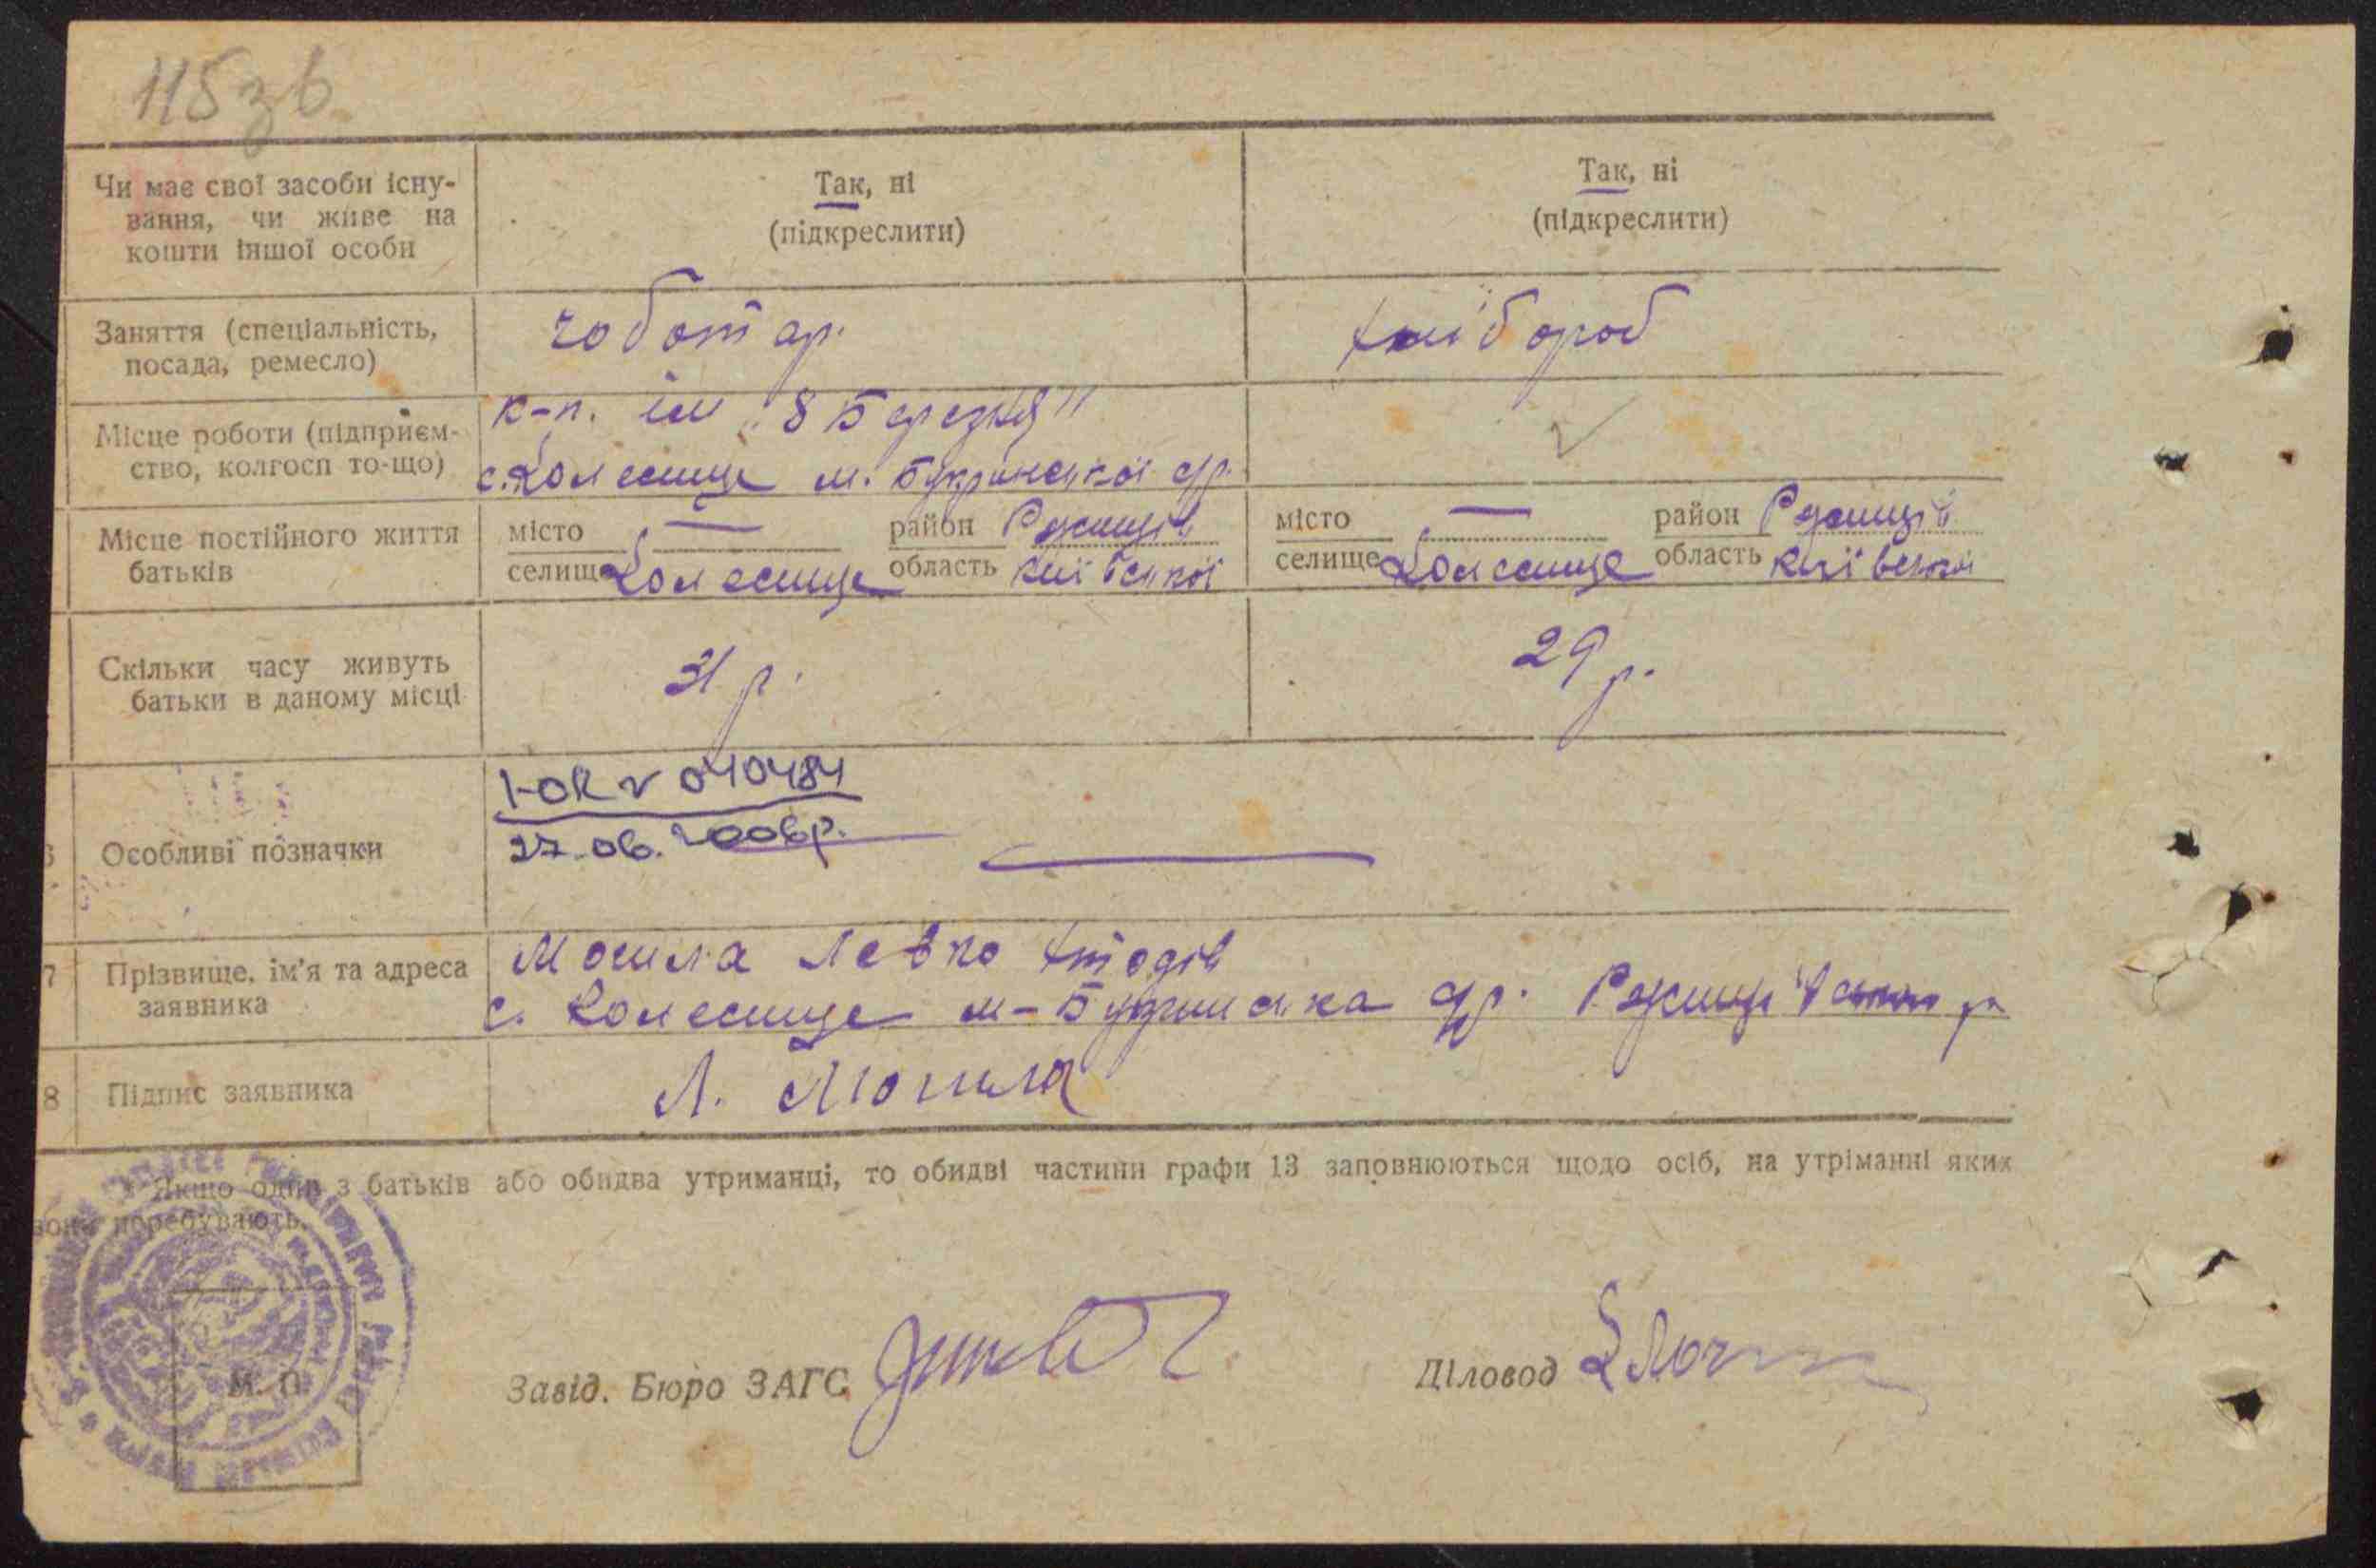 115зв.
Чи має свої засоби існу-
вання, чи живе на
кошти іншої особи
Так, ні
(підкреслити)
Так, ні
(підкреслити)
Заняття (спеціальність,
посада, ремесло)
чоботар.
хлібороб
Місце роботи (підприєм-
ство, колгосп то-що)
к-п. ім „8 Березня"
с. Колесище м. Букринської с/р.
Місце постійного життя
батьків
місто — район Ржищів
селище Колесище область Київської
місто — район Ржищів
селище Колесище область Київської
Скільки часу живуть
батьки в даному місці
31 р.
29 р.
Особливі позначки
І-ОК № 040484
27.06.2006р.
7 Прізвище, ім'я та адреса
заявника
Могила Левко
с. Колесище м-Букринська с/р. Ржищівськ р
8 Підпис заявника
Л. Могила
Якщо один з батьків або обидва утриманці, то обидві частини графи 13 заповнюються щодо осіб, на утріманні яких
вони перебувають.
М. П.
Завід. Бюро ЗАГС
Діловод